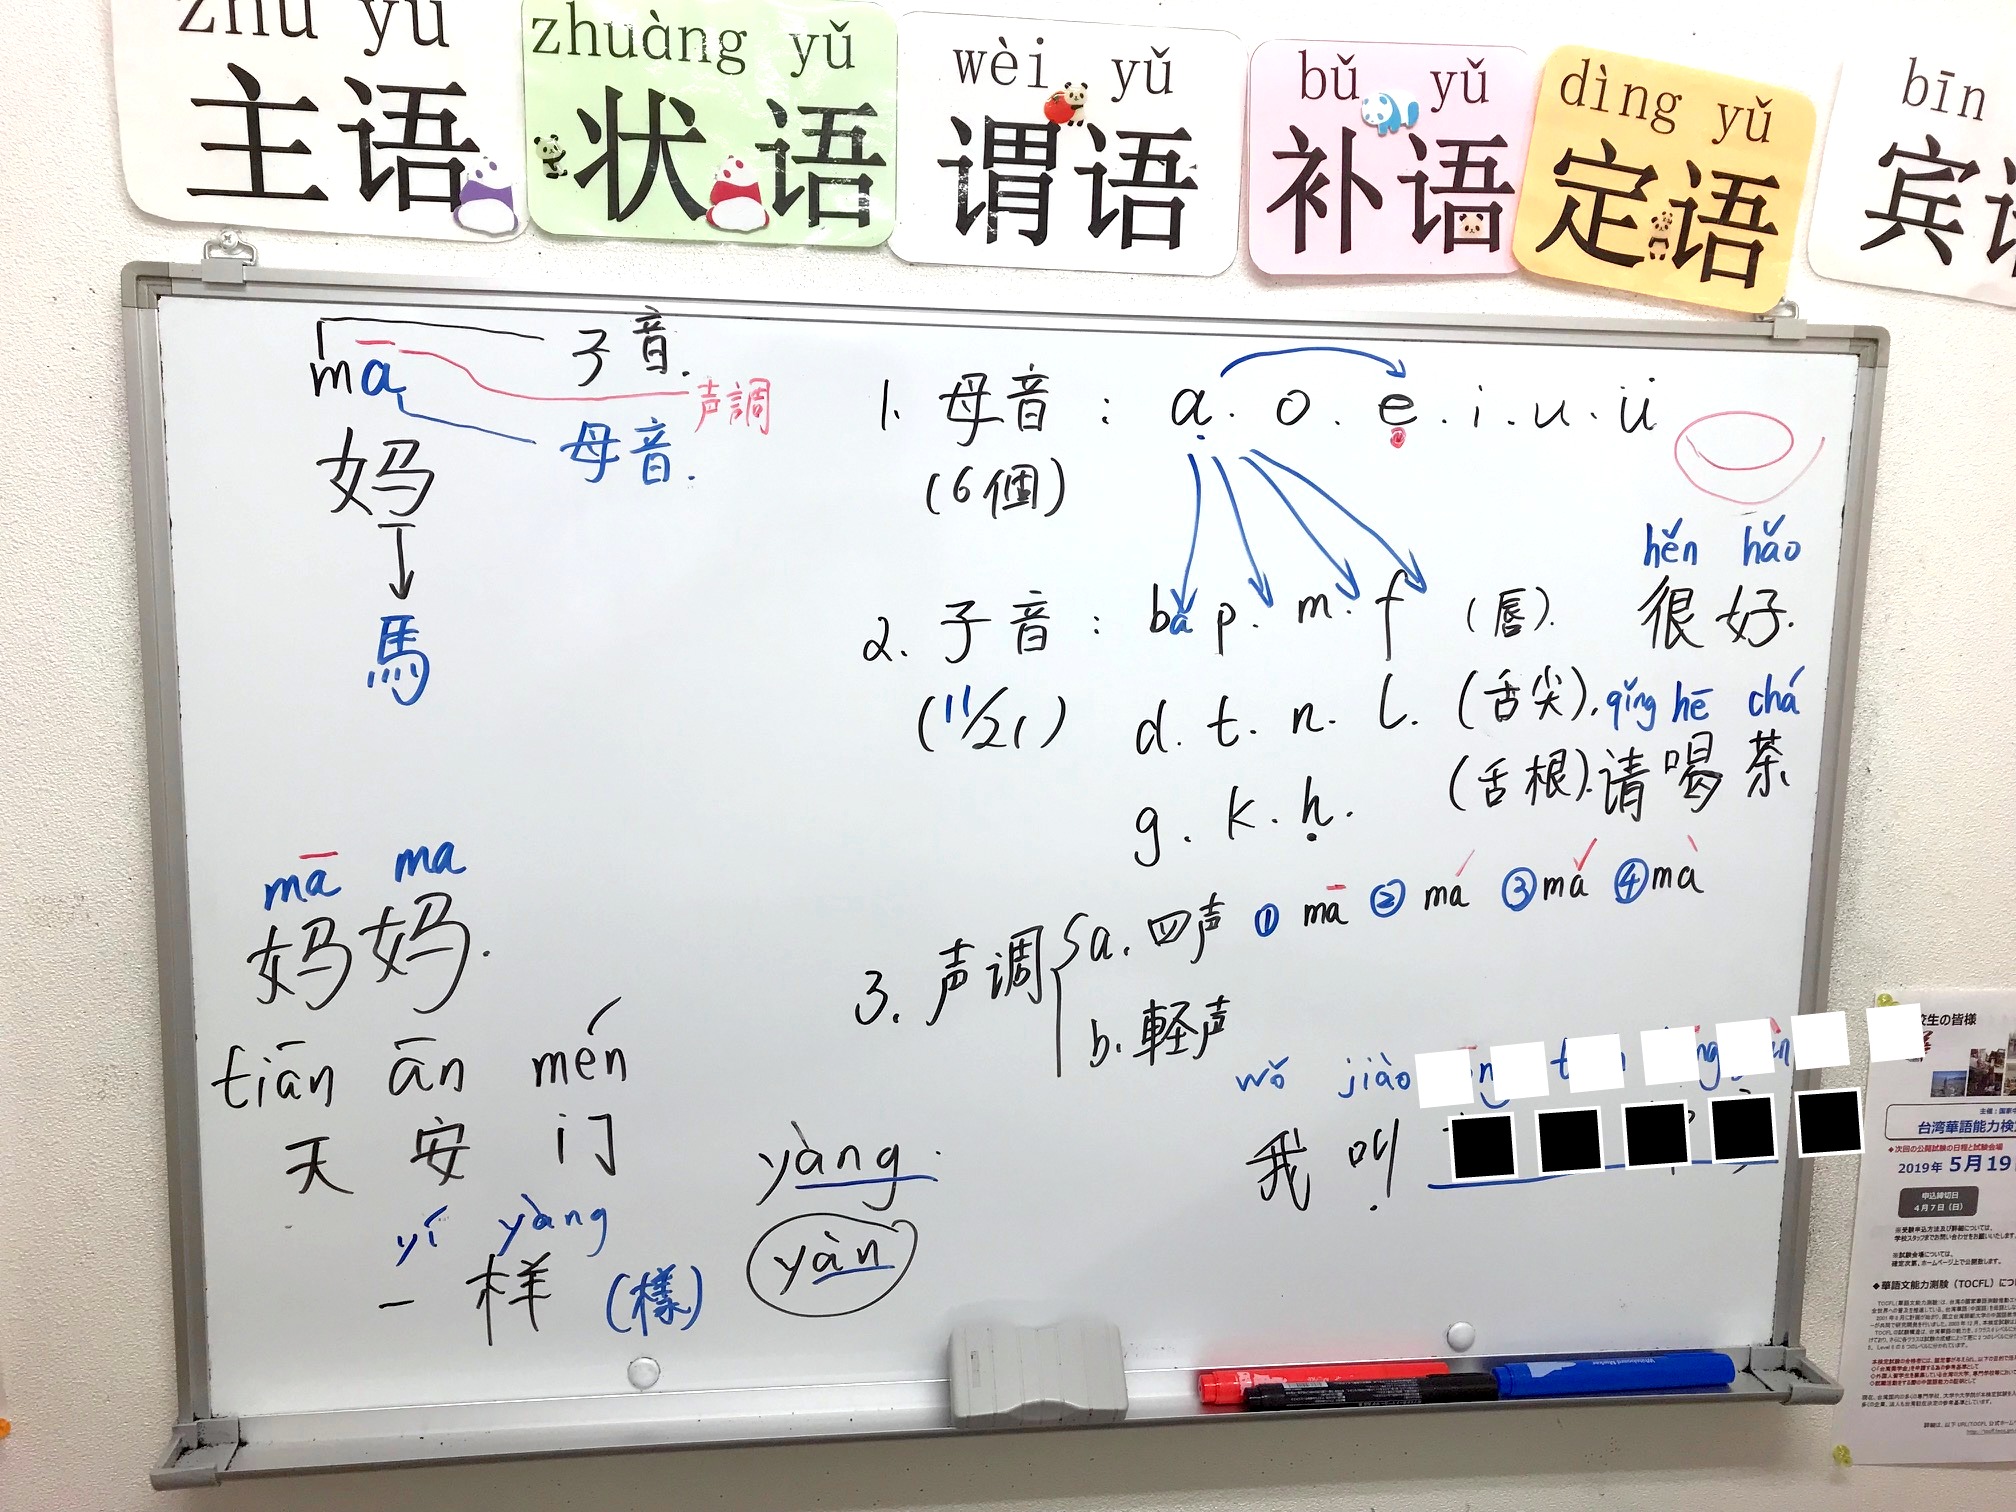 zhǔ yǔ
主语
zhuàng yǔ
状语
wèi yǔ
谓语
bǔ yǔ
补语
dìng yǔ
定语
bīn
宾语
mā
子音.
声調
母音.
妈
馬
mā ma
妈妈.
tiān ān mén
天安门
yí yàng
一样(樣)
yàng.
yàn
1. 母音: a. o. e. i. u. ü
(6個)
2. 子音: bǎ p. m. f (唇).
(11/21) d. t. n. l. (舌尖).
g. k. h. (舌根).
hěn hǎo
很好.
qǐng hē chá
请喝茶
3. 声调
a. 四声 ① mā ② má ③ mǎ ④ mà
b. 軽声
wǒ jiào
我叫
校生の皆様
台湾華語能力検
◆次回の公開試験の日程と試験会場
2019年 5月19
申込締切日
4月7日(日)
◆華語文能力測験(TOCFL)につ